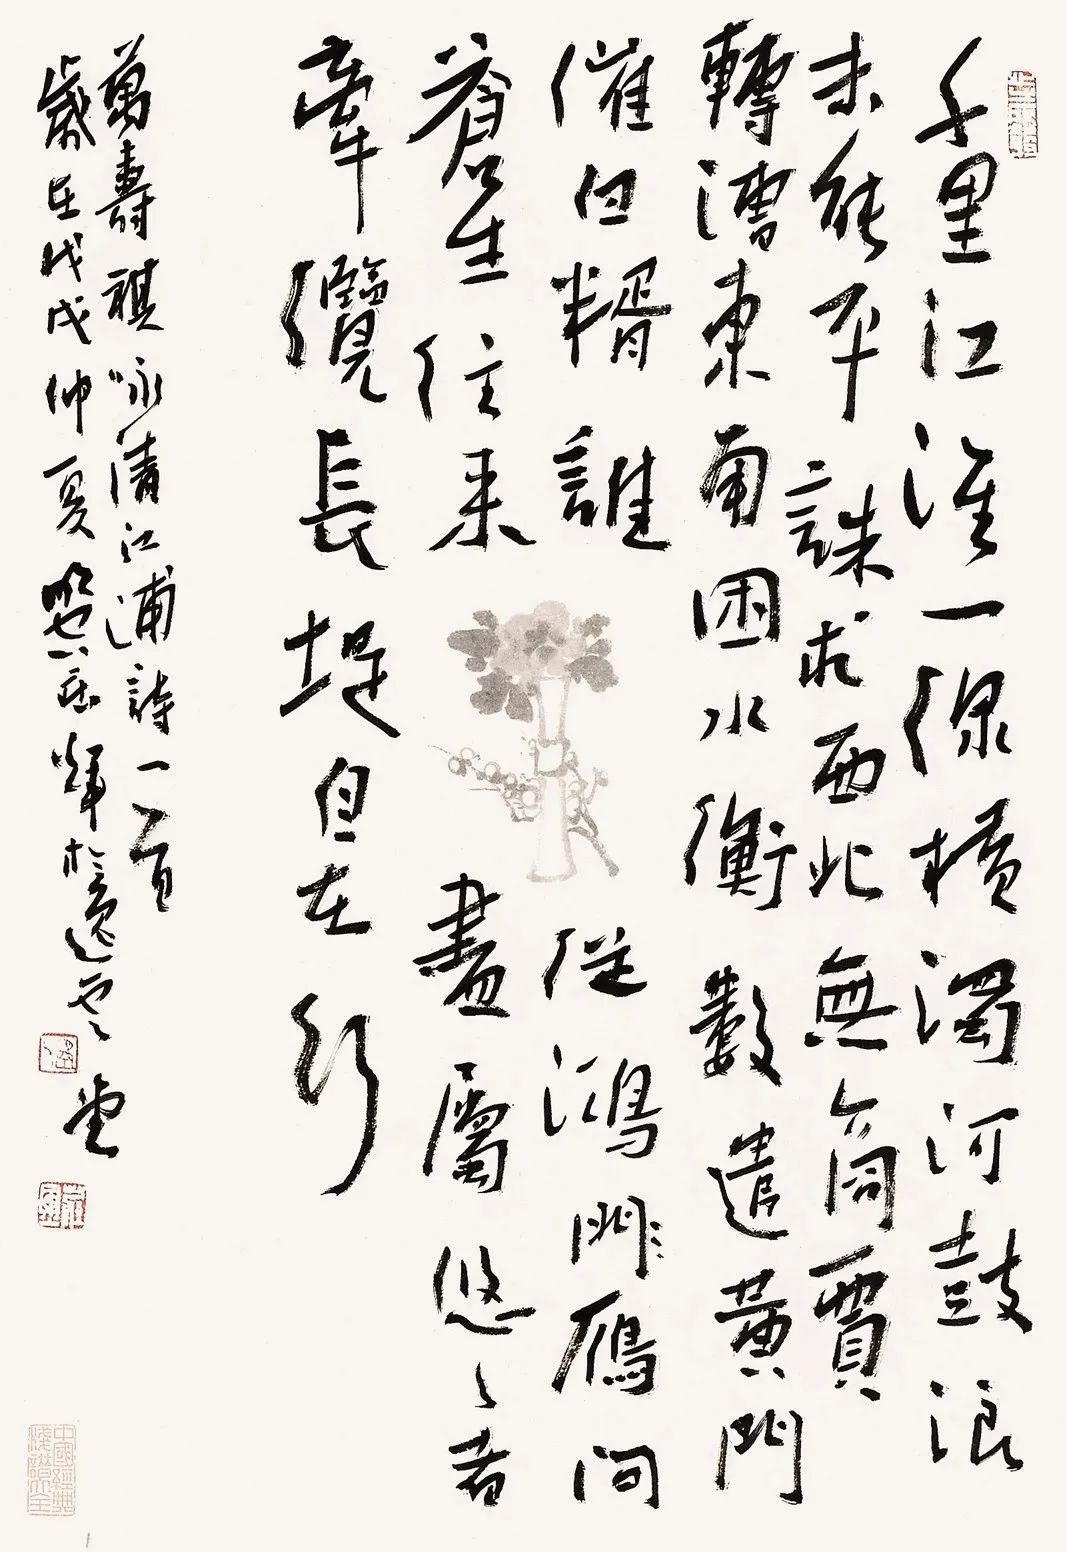 千里江淮一線橫濁河鼓浪
未能平誅求西北無商賈
轉漕東南困水衡數遣黃門
催白糈誰從鴻鴈問
蒼生往來盡屬悠悠者
牽纜長堤自在行
萬壽祺咏清江浦詩一首
歲在戊戌仲夏
中國經典